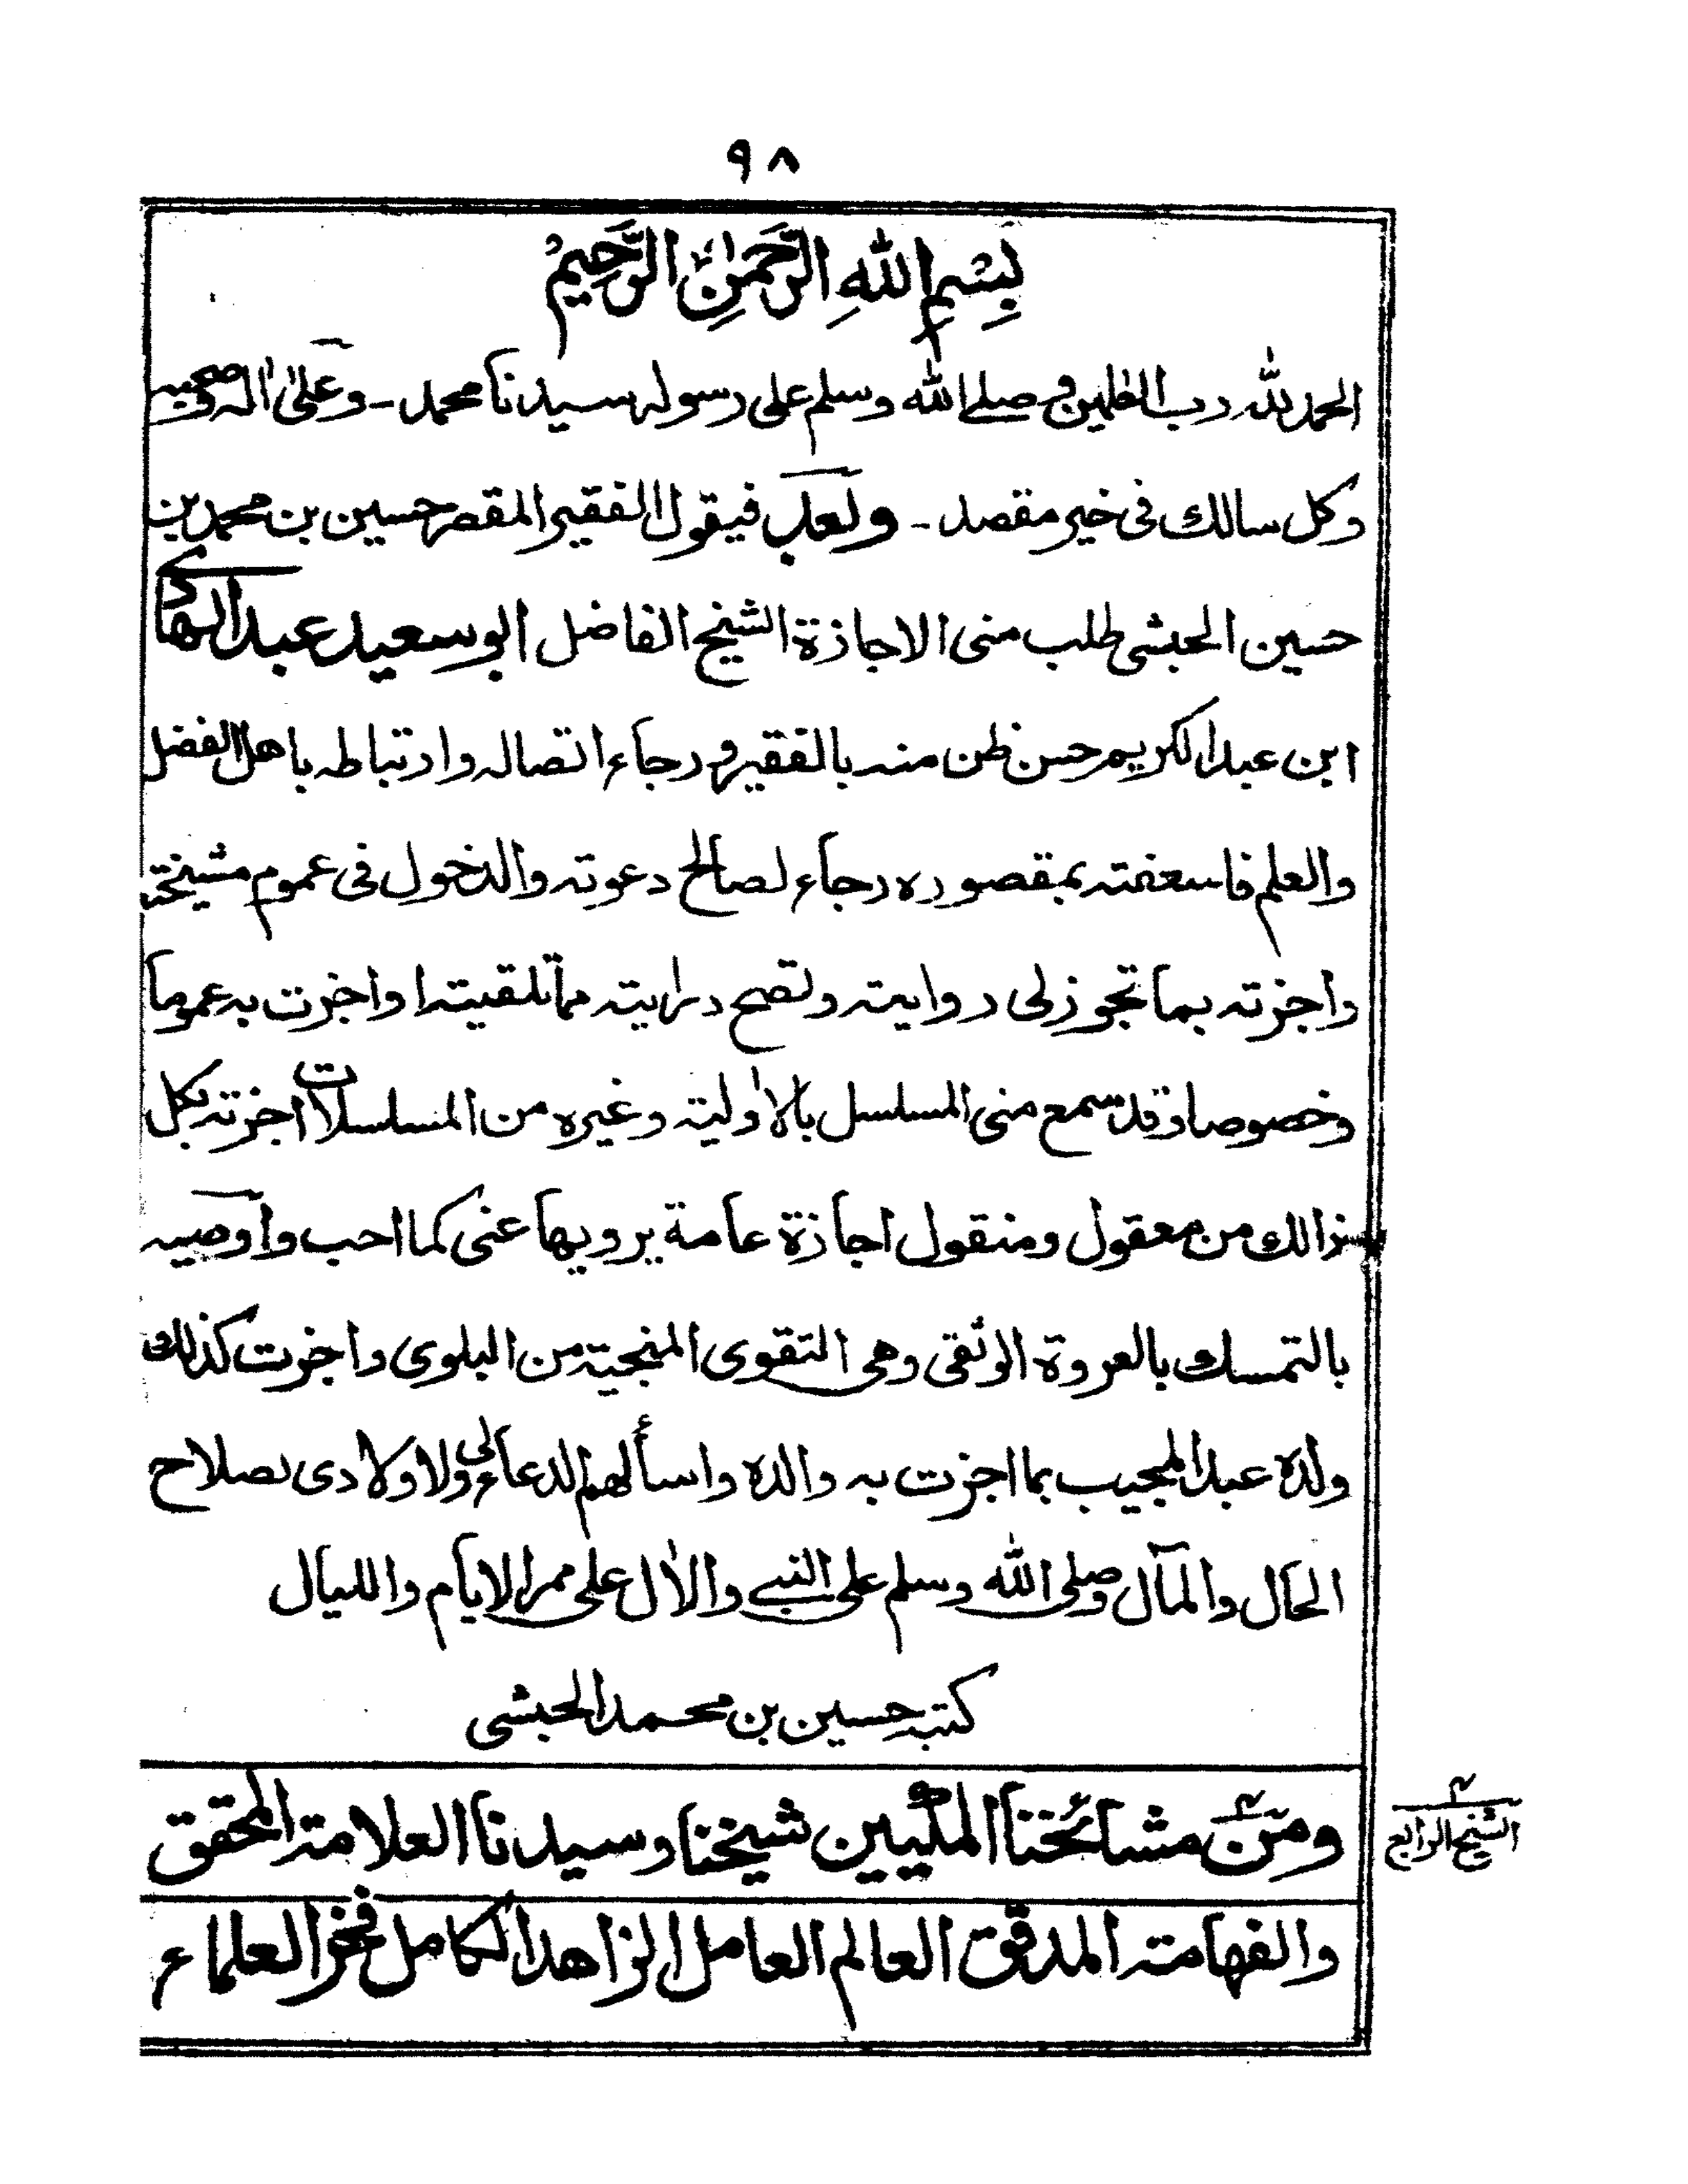 ٩٨
بِسْمِ اللهِ الرَّحْمٰنِ الرَّحِيْمِ
الحمد لله رب العٰلمين و صلے الله وسلم على رسوله سيدنا محمد - وعلىٰ اٰله وصحبه
وكل سالك فى خير مقصد - وبعد فيقول الفقير المقصر حسين بن محمد بن
حسين الحبشى طلب منى الاجازة الشيخ الفاضل ابو سعيد عبد الهادى
ابن عبد الكريم حسن ظن منه بالفقير و رجاء اتصاله وارتباطه باهل الفضل
والعلم فاسعفته بمقصوره رجاء لصالح دعوته والدخول فى عموم مشيخته
واجزته بما تجوز لى روايته وتصح درايته مما تلقيته او اجزت به عموما
وخصوصا وقد سمع منى المسلسل بالاولية وغيره من المسلسلات اجزته بكل
ذالك من معقول ومنقول اجازة عامة يرويها عنى كما احب واوصيه
بالتمسك بالعروة الوثقى وهى التقوى المنجية من البلوى واجزت كذلك
ولده عبد المجيب بما اجزت به والده واسألهم الدعاء لى ولاولادى بصلاح
الحال والمآل وصلى الله وسلم على النبے والاٰل على ممر الايام والليال
كتبه حسين بن محمد الحبشى
ومن مشائخنا المكيين شيخنا وسيدنا العلامة المحقق
الشيخ الرابع
والفهامة المدقق العالم العامل الزاهد الكامل فخر العلماء